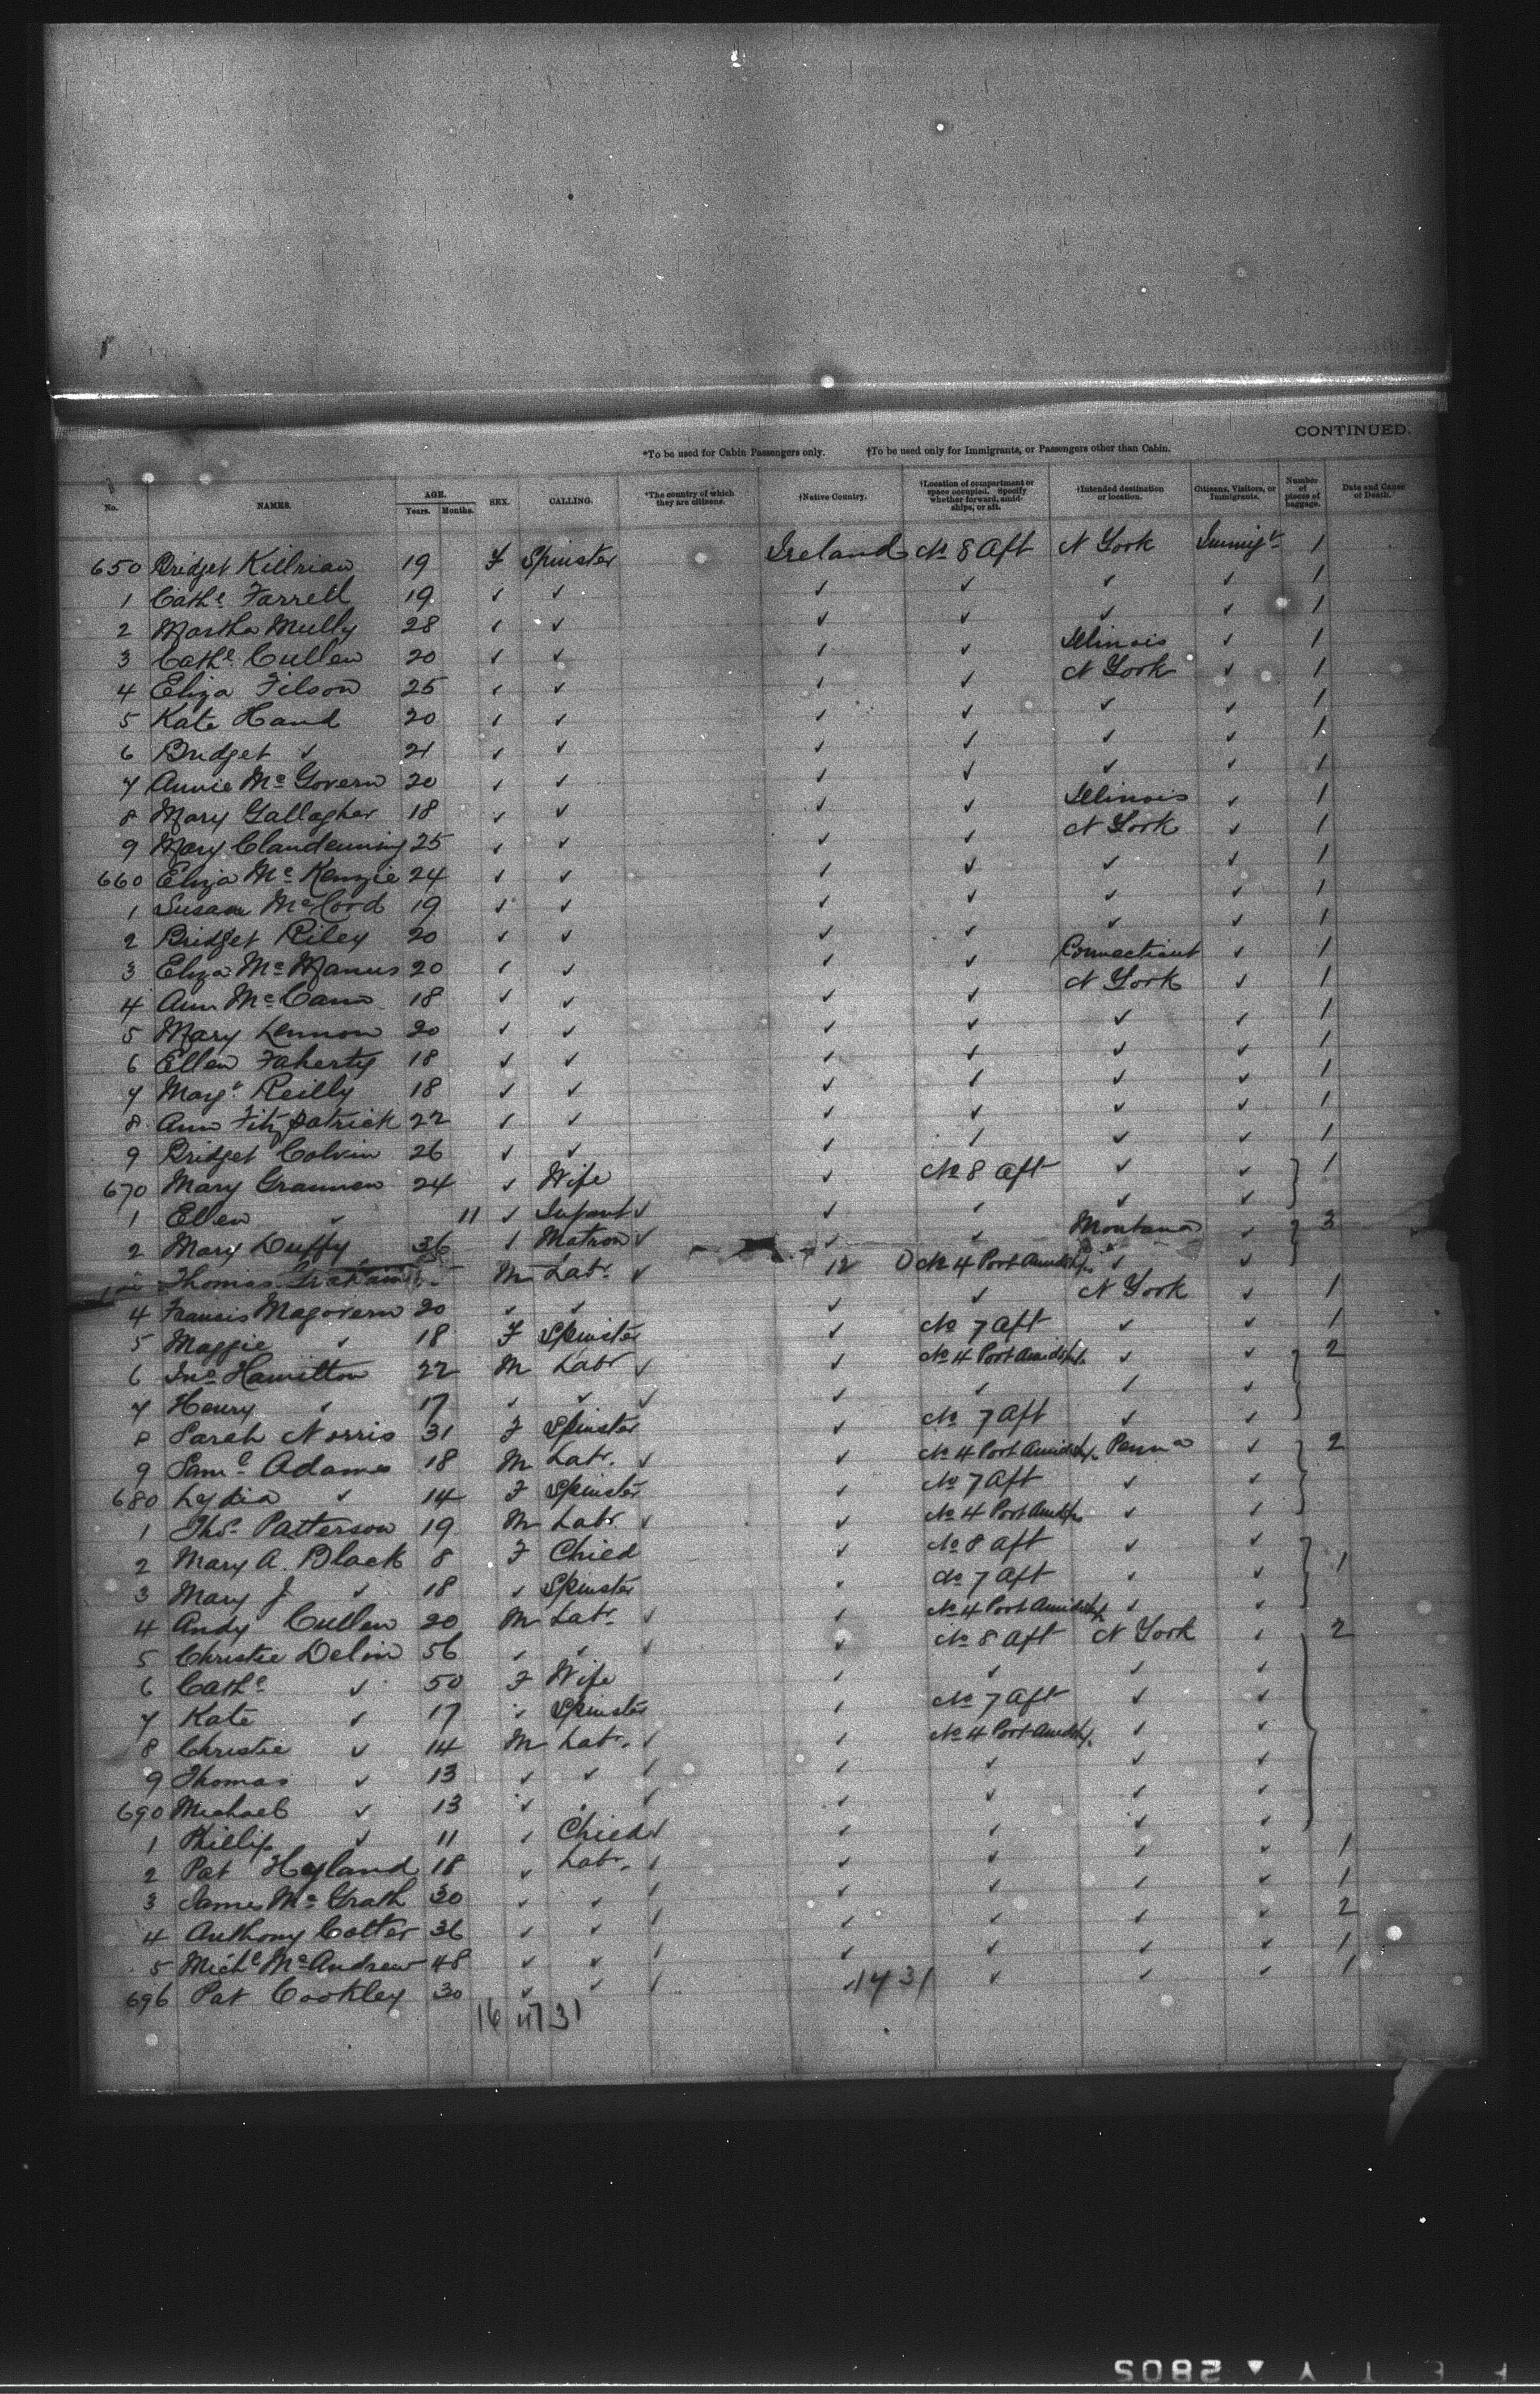 CONTINUED.
*To be used for Cabin Passengers only. †To be used only for Immigrants, or Passengers other than Cabin.
No. NAMES. AGE. Years. Months. SEX. CALLING. *The country of which they are citizens. †Native Country. †Location of compartment or space occupied. Specify whether forward, amidships, or aft. †Intended destination or location. Citizens, Visitors, or Immigrants. Number of pieces of baggage. Date and Cause of Death.
650 Bridget Kilrian 19 F Spinster Ireland No 8 Aft N York Immigt 1
1 Cathe Farrell 19 ✓ ✓ ✓ ✓ ✓ ✓ 1
2 Martha Mully 28 ✓ ✓ ✓ ✓ ✓ ✓ 1
3 Cathe Cullen 20 ✓ ✓ ✓ ✓ Illinois ✓ 1
4 Eliza Filson 25 ✓ ✓ ✓ ✓ N York ✓ 1
5 Kate Hand 20 ✓ ✓ ✓ ✓ ✓ ✓ 1
6 Bridget ✓ 21 ✓ ✓ ✓ ✓ ✓ ✓ 1
7 Annie Mc Govern 20 ✓ ✓ ✓ ✓ ✓ ✓ 1
8 Mary Gallagher 18 ✓ ✓ ✓ ✓ Illinois ✓ 1
9 Mary Clandenning 25 ✓ ✓ ✓ ✓ N York ✓ 1
660 Eliza Mc Kenzie 24 ✓ ✓ ✓ ✓ ✓ ✓ 1
1 Susan McCord 19 ✓ ✓ ✓ ✓ ✓ ✓ 1
2 Bridget Riley 20 ✓ ✓ ✓ ✓ ✓ ✓ 1
3 Eliza Mc Manus 20 ✓ ✓ ✓ ✓ Connecticut ✓ 1
4 Ann Mc Cann 18 ✓ ✓ ✓ ✓ N York ✓ 1
5 Mary Lennon 20 ✓ ✓ ✓ ✓ ✓ ✓ 1
6 Ellen Faherty 18 ✓ ✓ ✓ ✓ ✓ ✓ 1
7 Margt Reilly 18 ✓ ✓ ✓ ✓ ✓ ✓ 1
8 Ann Fitzpatrick 22 ✓ ✓ ✓ ✓ ✓ ✓ 1
9 Bridget Colvin 26 ✓ ✓ ✓ ✓ ✓ ✓ 1
670 Mary Grannen 24 ✓ Wife ✓ No 8 Aft ✓ ✓ 1
1 Ellen ✓ 11 ✓ Infant ✓ ✓ ✓ ✓ ✓
2 Mary Duffy 36 ✓ Matron ✓ ✓ ✓ Montana ✓ 3
Thomas Graham M Labr ✓ 12 No 4 Port Amidshps ✓ ✓
4 Francis Magovern 20 ✓ ✓ ✓ ✓ N York ✓ 1
5 Maggie ✓ 18 F Spinster ✓ No 7 Aft ✓ ✓ 1
6 Jno Hamilton 22 M Labr ✓ ✓ No 4 Port Amidshps ✓ ✓ 2
7 Henry ✓ 17 ✓ ✓ ✓ ✓ ✓ ✓ ✓
8 Sarah Norris 31 F Spinster ✓ No 7 Aft ✓ ✓
9 Saml Adams 18 M Labr. ✓ ✓ No 4 Port Amidshps Penna ✓ 2
680 Lydia ✓ 14 F Spinster ✓ No 7 Aft ✓ ✓
1 Ths Patterson 19 M Labr. ✓ ✓ No 4 Port Amidshps ✓ ✓
2 Mary A. Black 8 F Chied ✓ No 8 Aft ✓ ✓ 1
3 Mary J ✓ 18 ✓ Spinster ✓ do 7 Aft ✓ ✓
4 Andy Cullen 20 M Labr. ✓ ✓ No 4 Port Amidshps ✓ ✓
5 Christie Delin 56 ✓ ✓ ✓ ✓ No 8 Aft N York ✓ 2
6 Cathe ✓ 50 F Wife ✓ ✓ ✓ ✓
7 Kate ✓ 17 ✓ Spinster ✓ No 7 Aft ✓ ✓
8 Christie ✓ 14 M Labr. ✓ ✓ No 4 Port Amidshps ✓ ✓
9 Thomas ✓ 13 ✓ ✓ ✓ ✓ ✓ ✓ ✓
690 Michael ✓ 13 ✓ ✓ ✓ ✓ ✓ ✓ ✓
1 Phillip ✓ 11 ✓ Chied ✓ ✓ ✓ ✓ ✓
2 Pat Hyland 18 ✓ Labr. ✓ ✓ ✓ ✓ ✓ 1
3 James Mc Grath 30 ✓ ✓ ✓ ✓ ✓ ✓ ✓ 1
4 Anthony Cotter 36 ✓ ✓ ✓ ✓ ✓ ✓ ✓ 2
5 Michl McAndrew 48 ✓ ✓ ✓ ✓ ✓ ✓ ✓ 1
696 Pat Cookley 30 ✓ ✓ ✓ ✓ 1431 ✓ ✓ ✓ 1
16 1731
2805